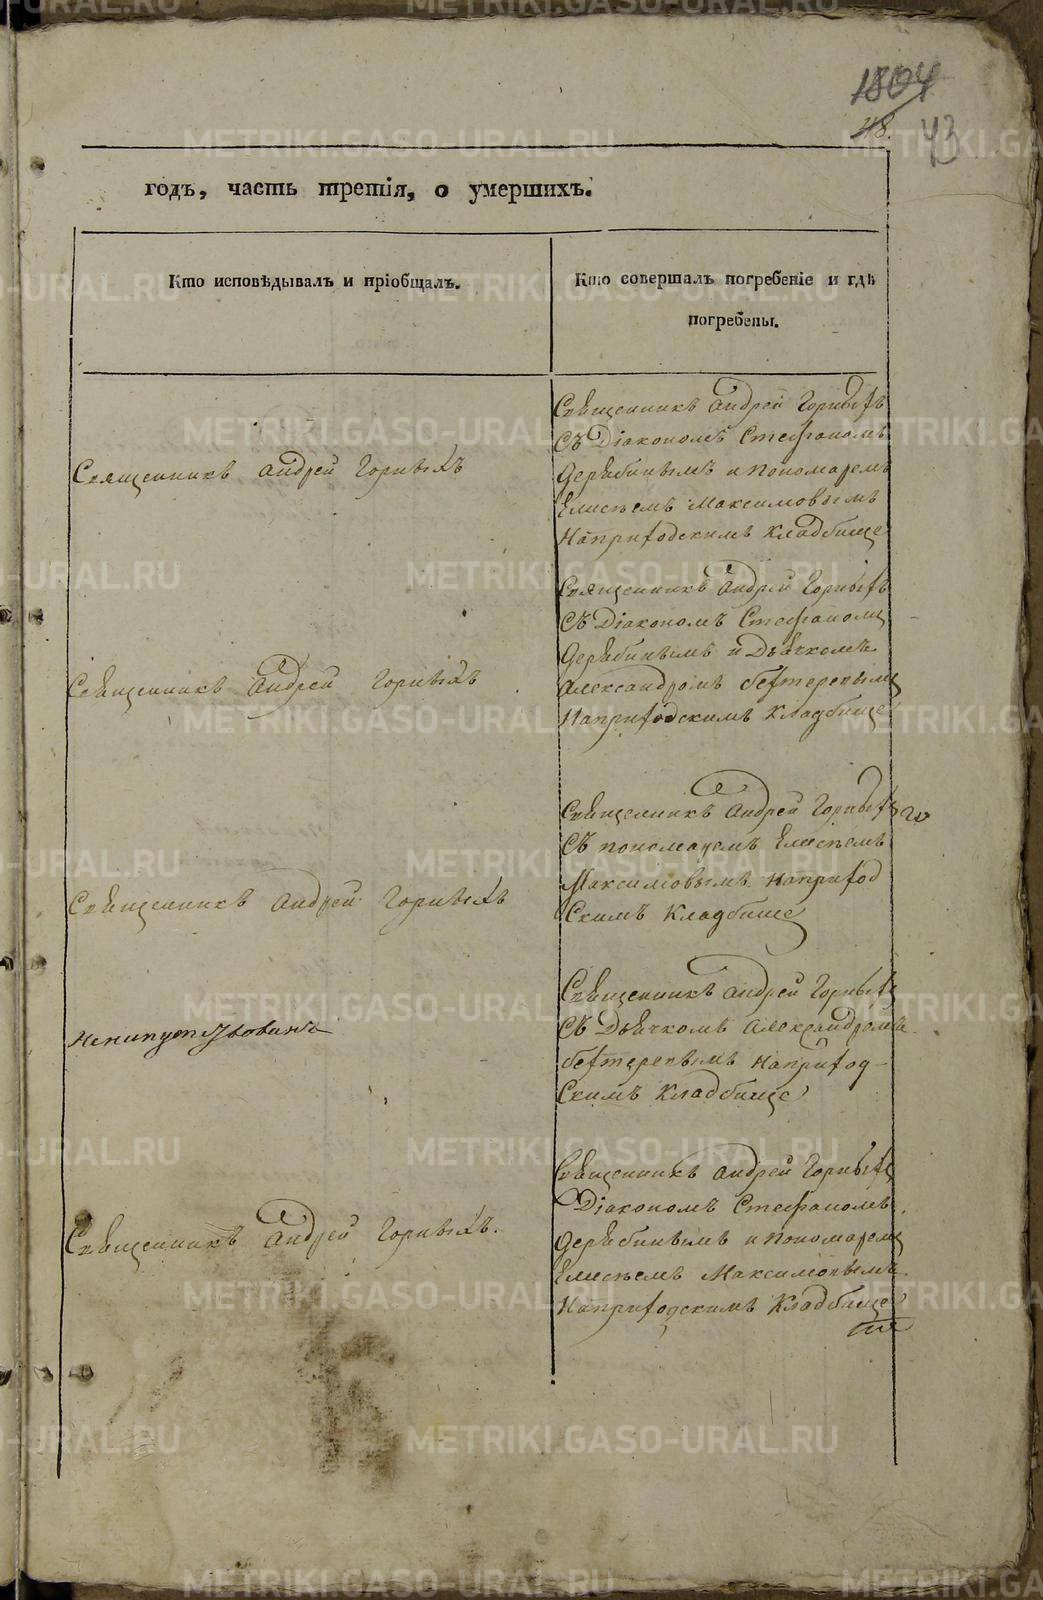 1804
48.
43
годъ, часть третія, о умершихъ.
Кто исповѣдывалъ и пріобщалъ.
Кто совершалъ погребеніе и гдѣ
погребены.
Священникъ Андрей Горныхъ
Священникъ Андрей Горныхъ
съ Діакономъ Стефаномъ
Дерябинымъ и Пономаремъ
Елисѣемъ Максимовымъ
Наприходскимъ Кладбище
Священникъ Андрей Горныхъ
Священникъ Андрей Горныхъ
съ Діакономъ Стефаномъ
Дерябинымъ и Дьячкомъ
Александромъ Бехтеревымъ
Наприходскимъ Кладбище
Священникъ Андрей Горныхъ
Священникъ Андрей Горныхъ
съ пономаремъ Елисѣемъ
Максимовымъ Наприход
скимъ Кладбище
Священникъ Андрей Горныхъ
съ Дьячкомъ Александромъ
Бехтеревымъ Наприход-
скимъ Кладбище
Священникъ Андрей Горныхъ.
Священникъ Андрей Горныхъ
Діакономъ Стефаномъ
Дерябинымъ и Пономаремъ
Елисѣемъ Максимовымъ
Наприходскимъ Кладбище
METRIKI.GASO-URAL.RU